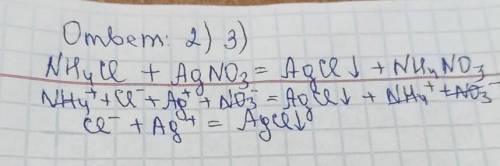 Ответ: 2) 3)
NH₄Cl + AgNO₃ = AgCl↓ + NH₄NO₃
NH₄⁺ + Cl⁻ + Ag⁺ + NO₃⁻ = AgCl↓ + NH₄⁺ + NO₃⁻
Cl⁻ + Ag⁺ = AgCl↓